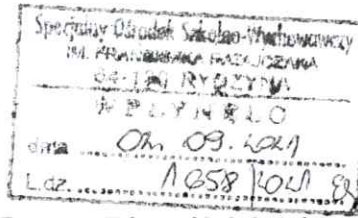 Specjalny Ośrodek Szkolno-Wychowawczy
IM. FRANCISZKA
RYDZYNA
WPŁYNĘŁO
data 02. 09. 2021
L.dz. 1658 2021